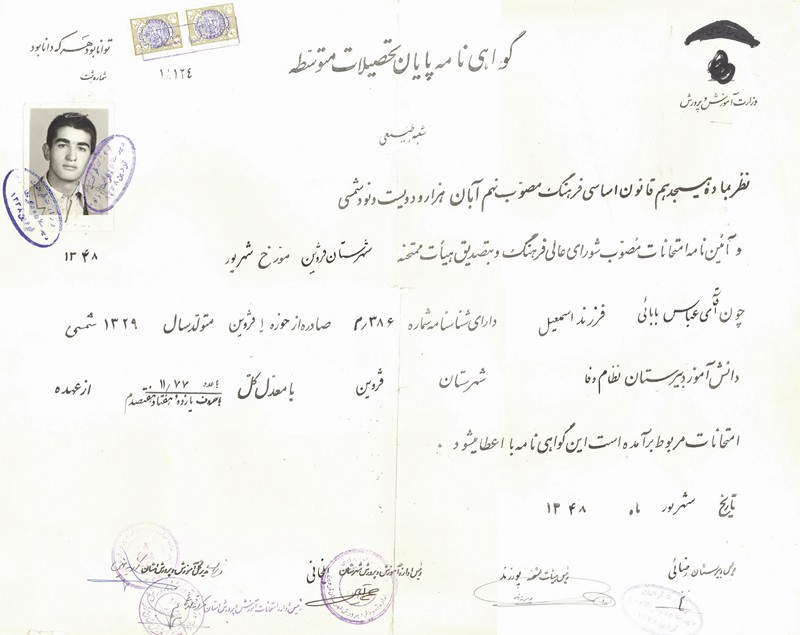 توانا بود هر که دانا بود
گواهی نامه پایان تحصیلات متوسطه
شماره ثبت
۱۱۲۴
وزارت آموزش و پرورش
شعبه طبیعی
نظر بماده هیجدهم قانون اساسی فرهنگ مصوب نهم آبان هزار و دویست و نود شمسی
و آئین نامه امتحانات مصوب شورای عالی فرهنگ و بتصدیق هیأت ممتحنه شهرستان قزوین مورخ شهریور ۱۳۴۸
چون آقای عباس بابائی فرزند اسمعیل دارای شناسنامه شماره ۳۸۶م صادره از حوزه ۱ قزوین متولد سال ۱۳۲۹ شمسی
دانش آموز دبیرستان نظام وفا شهرستان قزوین با معدل کل بعدد ۱۱/۷۷ بحروف یازده و هفتاد و هفت صدم از عهده
امتحانات مربوط برآمده است این گواهی نامه با اعطا میشود .
تاریخ شهریور ماه ۱۳۴۸
رئیس دبیرستان رضائی
رئیس هیأت ممتحنه پورزند
رئیس اداره آموزش و پرورش شهرستان
مدیر کل آموزش و پرورش استان
رئیس اداره امتحانات آموزش و پرورش استان